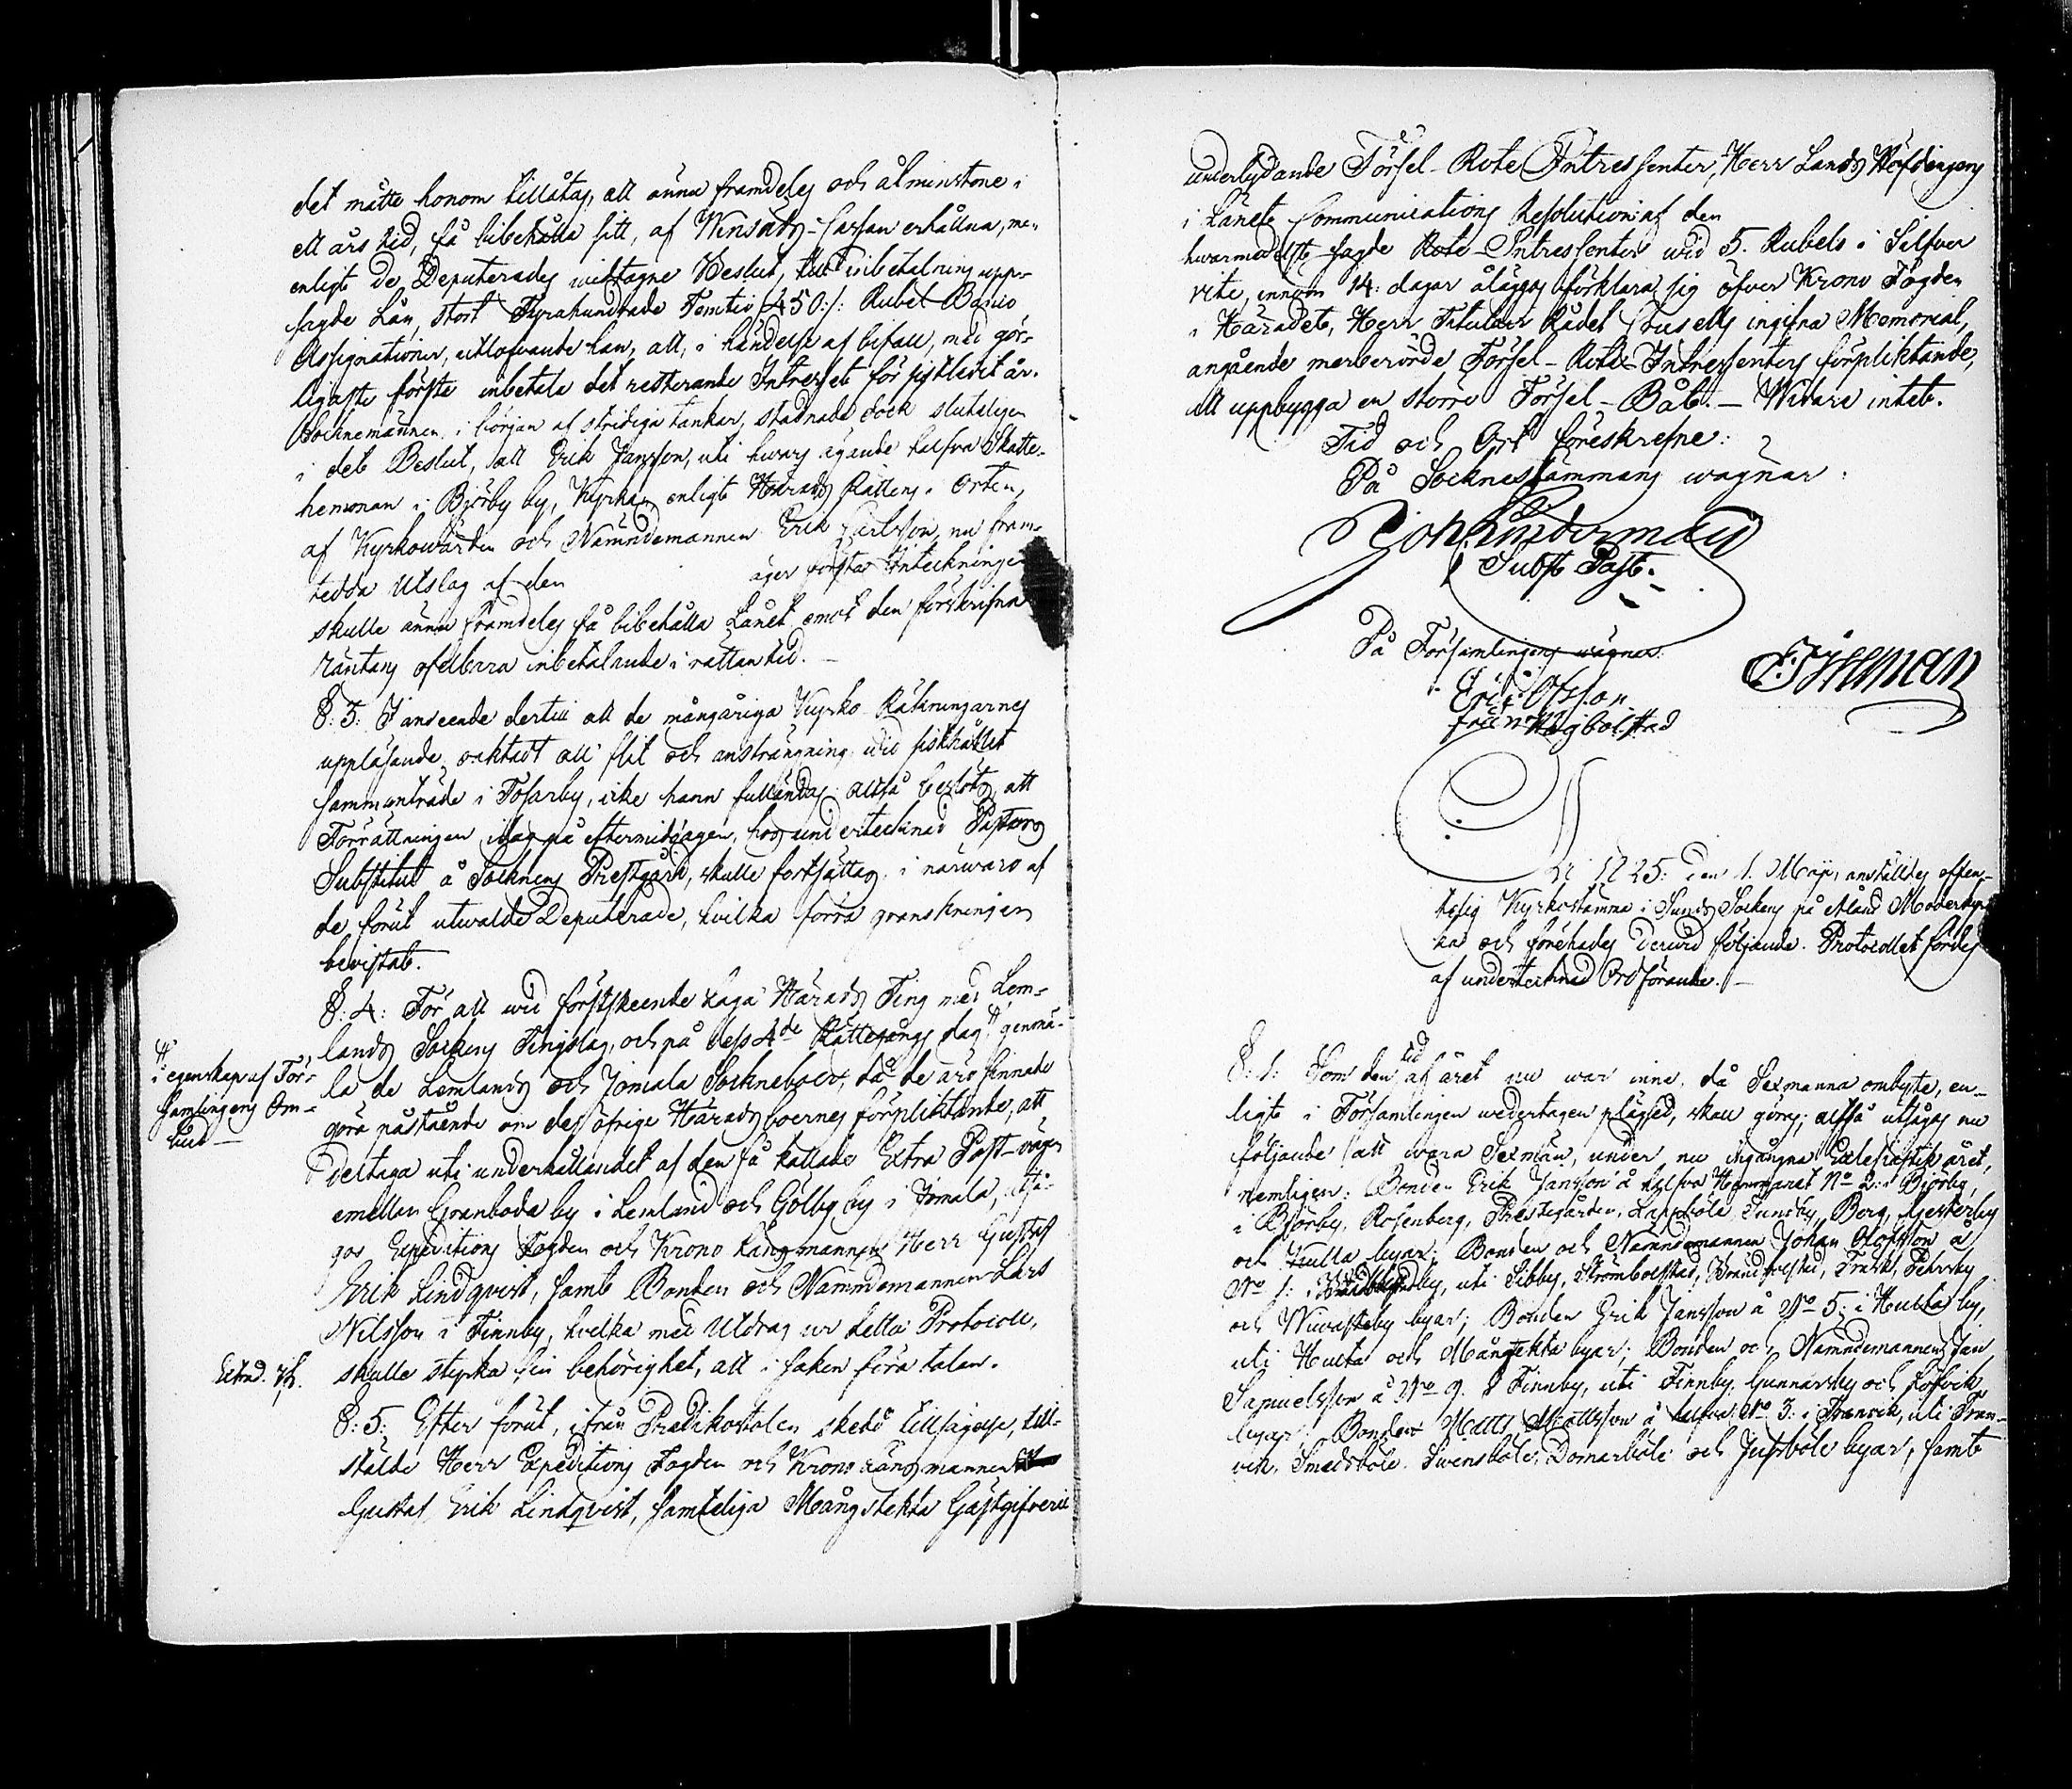 det måtte honom tillåtas, att ännu framdeles och åtminstone i
ett års tid, få bibehålla sitt, af Kyrko-Cassan erhållna, men
enligt De Deputerades vidtagne Beslut, till inbetalning upp-
sagde Lån, stort Fyrahundrade Femtio 450:/: Rubel Banco
Assignationer, utlofvande han, att, i händelse af bifall, med gör-
ligaste första inbetala det resterande Intresset för sistledit år.
Socknemännen, i början af stridiga tankar, stadnade dock sluteligen
i det Beslut, att Erik Jansson, uti hvars ägande halfva Skatte-
hemman i Björby by, Kyrkan, enligt Härads Rättens i Orten,
af Kyrkowärden och Nämndemannen Erik Carlsson, nu fram-
tedda Utslag af den äger första Inteckningen
skulle ännu framdeles få bibehålla Lånet emot den förskrifna
räntans ofelbara inbetalande i rättan tid. —
§: 3: I anseende dertill att de mångåriga Kyrko-Räkningarnes
uppläsande, oaktadt all flit och ansträngning vid sisthållet
sammanträde i Tosarby, icke hann fulländas; alltså beslöts, att
Förrättningen idag på eftermiddagen, hos undertecknad Pastors
Substitut å Socknens Prestgård, skulle fortsättas, i närwaro af
de förut utwalde Deputerade, hvilka förra granskningen
bevistat.
§: 4: För att wid förstskeende laga Härads Ting med Lem-
lands Sockens Tingslag, och på dess 4de Rättegångs dag # genmä-
# i egenskap af För-
samlingens Om-
bud —
la de Lemlands och Jomala Socknebors, då de äro sinnade
göra påstående om des öfrige Häradsboernes förpliktande, att
deltaga uti underhållandet af den så kallade Extra Post-vägen
emellan Granboda by i Lemland och Gölby by i Jomala, utså-
gos Expeditions Fogden och Krono Länsmannen Herr Gustaf
Erik Lindqvist, samt Bonden och Nämndemannen Lars
Nilsson i Finnby, hvilka med Utdrag ur detta Protocoll,
skulle styrka sin behörighet, att i saken föra talan.
Extrad.
§: 5: Efter förut, ifrån Predikostolen skedd tillsägelse, till-
stälde Herr Expeditions Fogden och Krono Länsmannen
Gustaf Erik Lindqvist, samteliga Mångstekta Gästgifveri
underlydande Förssel-Rote Intressenter, Herr Lands Höfdingens
i Länets Communications Resolution af den
hwarmedelst sagde Rote-Intressenter wid 5. Rubels i Silfver
vite, innom 14: dagar åläggas förklara sig öfver Krono Fogden
i Häradet, Herr Titulair Rådet Crusells ingifna Memorial,
angående merberörde Försel-Rote-Intressenters förpliktande,
att uppbygga en större Försel-Båt. — Widare intet.
Tid och Ort föreskrefne:
På Sockneståmmans wägnar:
Joh: Lindorman
Subst: Past:
På Församlingens wägnar:
Eric Olsson
från Högbolstad
År 1825: den 1. Maji, anställdes offen-
telig Kyrkostämma i Sunds Sockens på Åland Moderkyr-
ka och förehades derwid följande. Protocollet fördes
af undertecknad Ordförande. —
§: 1: Som den tid af året nu war inne, då Sexmanna ombyte, en-
ligt i Församlingen wedertagen plägsed, skall göras; alltså utsågos nu
följande att wara Sexmän, under nu ingångna Ecclesiastik året,
nemligen: Bonden Erik Jansson å halfva Hemmanet No 2: i Björby,
i Björby, Rosenberg, Prestegården, Lappböle, Sundby, Berg, Gesterby
och Kulla byar; Bonden och Nämndemannen Johan Olofsson å
No 1: i by, uti Sibby, Strömbolstad, Brändbolstad, Träsk, Persby
och Wiwasteby byar; Bonden Erik Jansson å No 5: i Hulta by,
uti Hulta och Mångstekta byar; Bonden och Nämndemannen Jan
Samuelsson å No 9. i Finnby, uti Finnby, Gunnarsby och Löfvik
byar; Bonden Matts Mattsson å halfva No 3: i Tranvik, uti Tran-
vik, Smedsböle, Swensböle, Domarböle och Jussböle byar; samt